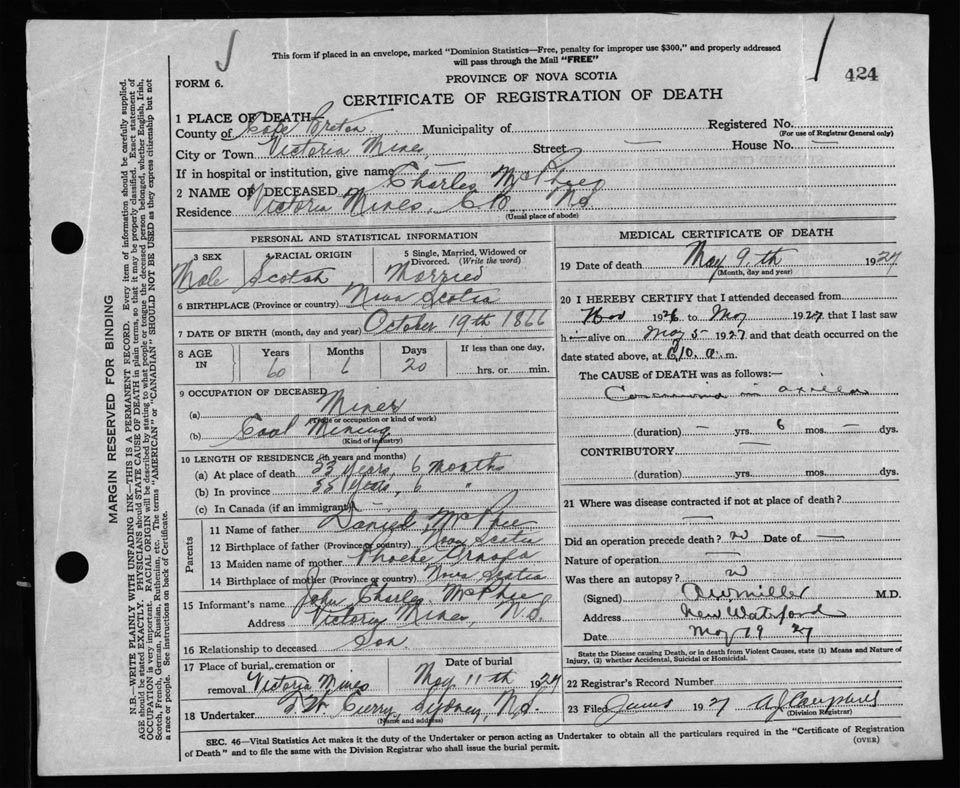 This form if placed in an envelope, marked "Dominion Statistics—Free, penalty for improper use $300," and properly addressed
will pass through the Mail "FREE"
424
FORM 6.
PROVINCE OF NOVA SCOTIA
CERTIFICATE OF REGISTRATION OF DEATH
1 PLACE OF DEATH
County of Cape Breton Municipality of Registered No.
(For use of Registrar General only)
City or Town Victoria Mines, Street — House No. —
If in hospital or institution, give name —
2 NAME OF DECEASED Charles McPhee
Residence Victoria Mines, C.B. N.S.
(Usual place of abode)
PERSONAL AND STATISTICAL INFORMATION
3 SEX 4 RACIAL ORIGIN 5 Single, Married, Widowed or Divorced. (Write the word)
Male Scotch Married
6 BIRTHPLACE (Province or country) Nova Scotia
7 DATE OF BIRTH (month, day and year) October 19th 1866
8 AGE IN Years Months Days If less than one day,
60 6 20 hrs. or min.
9 OCCUPATION OF DECEASED
(a) Miner
(Trade or occupation or kind of work)
(b) Coal Mining
(Kind of industry)
10 LENGTH OF RESIDENCE (in years and months)
(a) At place of death 53 Years, 6 months
(b) In province 55 Years, 6 "
(c) In Canada (if an immigrant) —
Parents
11 Name of father Daniel McPhee
12 Birthplace of father (Province or country) Nova Scotia
13 Maiden name of mother Phoebe
14 Birthplace of mother (Province or country) Nova Scotia
15 Informant's name John Charles McPhee
Address Victoria Mines, N.S.
16 Relationship to deceased Son.
17 Place of burial, cremation or removal Victoria Mines Date of burial May 11th 1927
18 Undertaker Curry, Sydney, N.S.
(Name and address)
MEDICAL CERTIFICATE OF DEATH
19 Date of death May 9th 1927
(Month, day and year)
20 I HEREBY CERTIFY that I attended deceased from
Nov 1926 to May 1927 that I last saw
h— alive on May 5 1927 and that death occurred on the
date stated above, at a. m.
The CAUSE of DEATH was as follows:—
(duration) — yrs. 6 mos. — dys.
CONTRIBUTORY —
(duration) yrs. mos. dys.
21 Where was disease contracted if not at place of death?
—
Did an operation precede death? Date of —
Nature of operation —
Was there an autopsy?
(Signed) Miller M.D.
Address New Waterford
Date May 19 27
State the Disease causing Death, or in death from Violent Causes, state (1) Means and Nature of
Injury, (2) whether Accidental, Suicidal or Homicidal.
22 Registrar's Record Number
23 Filed 1927 Campbell
(Division Registrar)
SEC. 46—Vital Statistics Act makes it the duty of the Undertaker or person acting as Undertaker to obtain all the particulars required in the "Certificate of Registration
of Death" and to file the same with the Division Registrar who shall issue the burial permit.
(OVER)
MARGIN RESERVED FOR BINDING
N.B.—WRITE PLAINLY WITH UNFADING INK—THIS IS A PERMANENT RECORD. Every item of information should be carefully supplied.
AGE should be stated EXACTLY. PHYSICIANS should STATE CAUSE OF DEATH in plain terms, so that it may be properly classified. Exact statement of
OCCUPATION is very important. RACIAL ORIGIN will be described by stating to what people or tongue the deceased person belonged, whether English, Irish,
Scotch, French, German, Russian, Ruthenian, etc. The terms "AMERICAN" or "CANADIAN" SHOULD NOT BE USED as they express citizenship but not
a race or people. See instructions on back of Certificate.